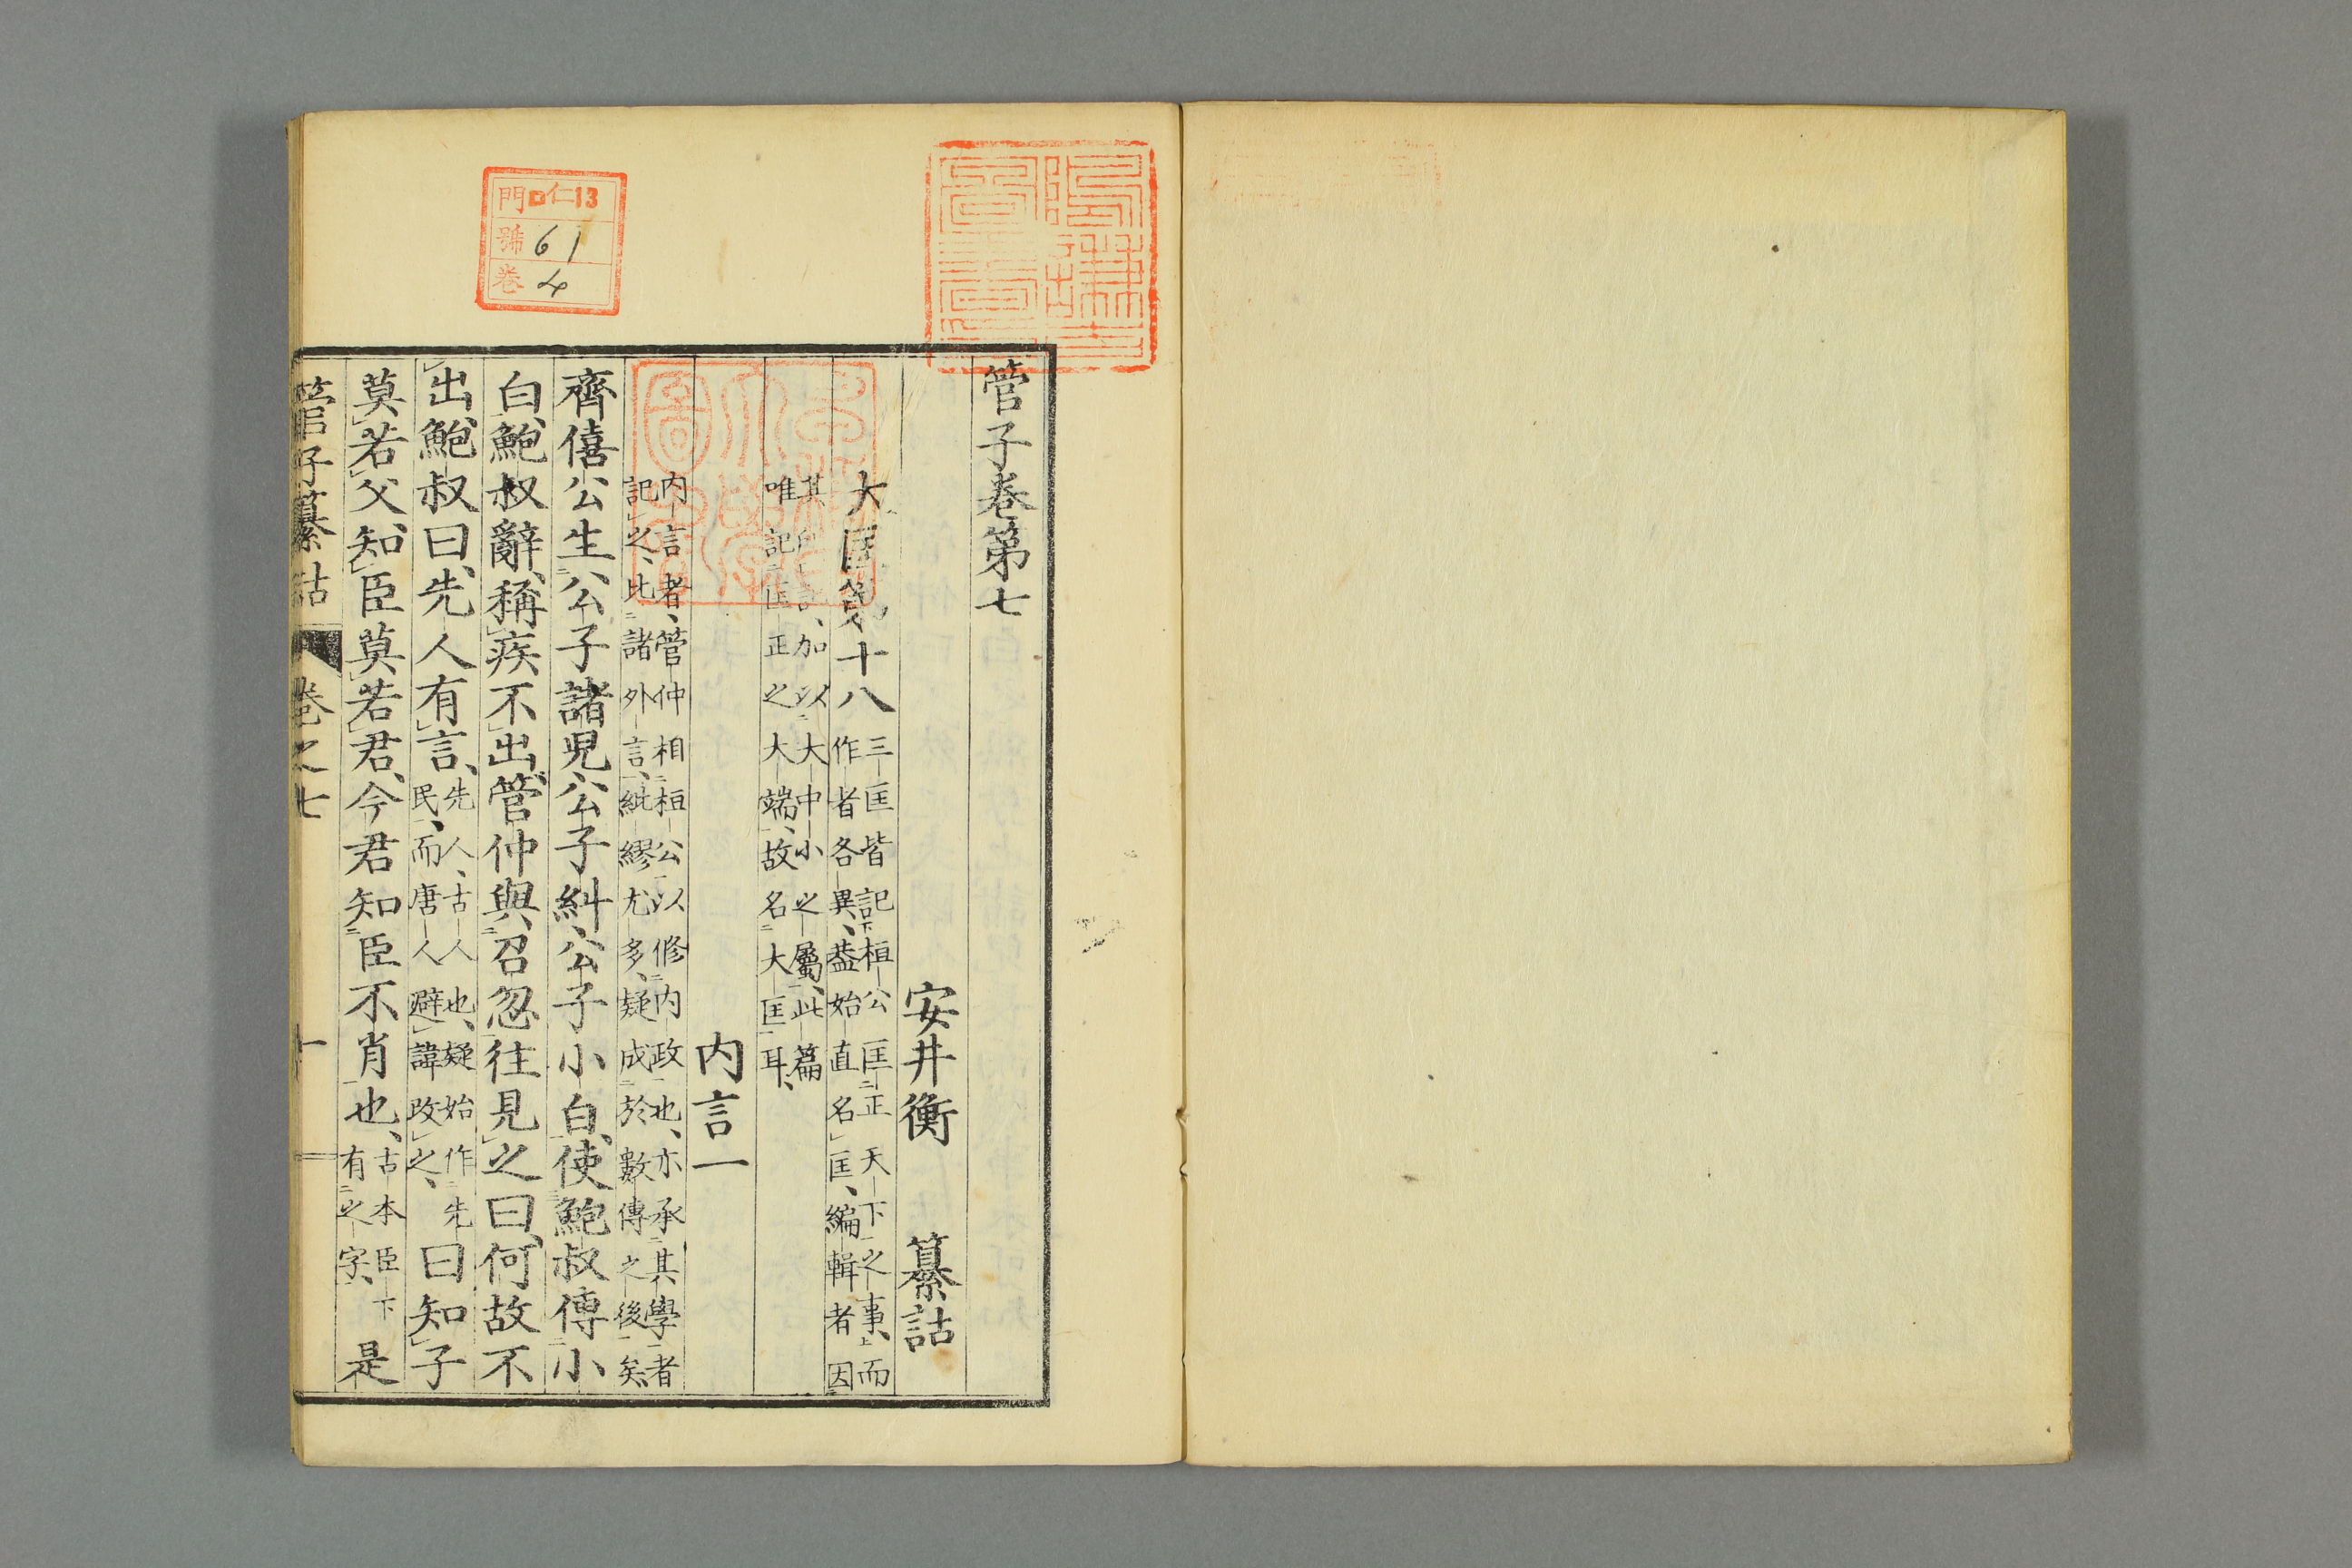 管子卷第七
安井衡 纂詁
大匡第十八 三匡皆記桓公匡正天下之事而
作者各異、葢始直名匡、編輯者因
其 加以大中小之屬、此篇
唯記匡正之大端、故名大匡耳、
内言一
内言者、管仲相桓公以修内政也、亦承其學者
記之、比諸外言、紕繆尤多、疑成於數傳之後矣
齊僖公生公子諸児公子糾公子小白、使鮑叔傅小
白、鮑叔辭、稱疾不出、管仲與召忽往見之曰、何故不
出、鮑叔曰、先人有言、先人、古人也、疑始作先
民、而唐人避諱改之、曰知子
莫若父、知臣莫若君、今君知臣不肖也、古本臣下
有之字、是
管子纂詁 卷之七 一
門 口仁13
號 61
卷 4